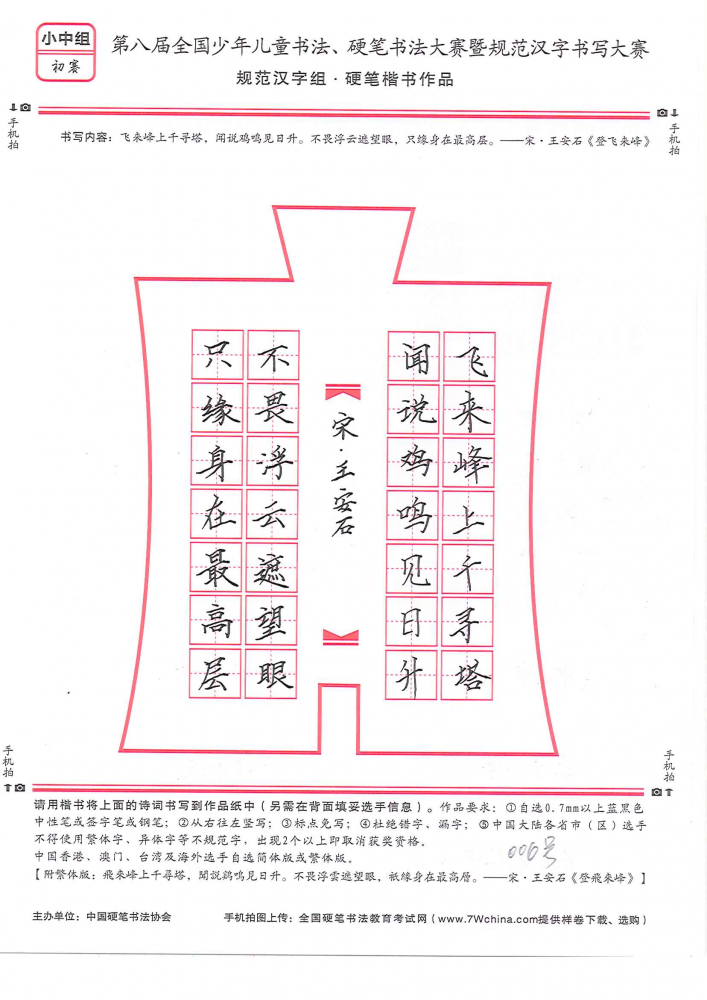 小中组
初赛
第八届全国少年儿童书法、硬笔书法大赛暨规范汉字书写大赛
规范汉字组·硬笔楷书作品
手机拍
手机拍
书写内容：飞来峰上千寻塔，闻说鸡鸣见日升。不畏浮云遮望眼，只缘身在最高层。——宋·王安石《登飞来峰》
飞来峰上千寻塔
闻说鸡鸣见日升
宋·王安石
不畏浮云遮望眼
只缘身在最高层
手机拍
手机拍
请用楷书将上面的诗词书写到作品纸中（另需在背面填妥选手信息）。作品要求：①自选0.7mm以上蓝黑色
中性笔或签字笔或钢笔；②从右往左竖写；③标点免写；④杜绝错字、漏字；⑤中国大陆各省市（区）选手
不得使用繁体字、异体字等不规范字，出现2个以上即取消获奖资格。
中国香港、澳门、台湾及海外选手自选简体版或繁体版。
006号
【附繁体版：飛來峰上千尋塔，聞説鷄鳴見日升。不畏浮雲遮望眼，衹緣身在最高層。——宋·王安石《登飛來峰》】
主办单位：中国硬笔书法协会
手机拍图上传：全国硬笔书法教育考试网（www.7Wchina.com提供样卷下载、选购）